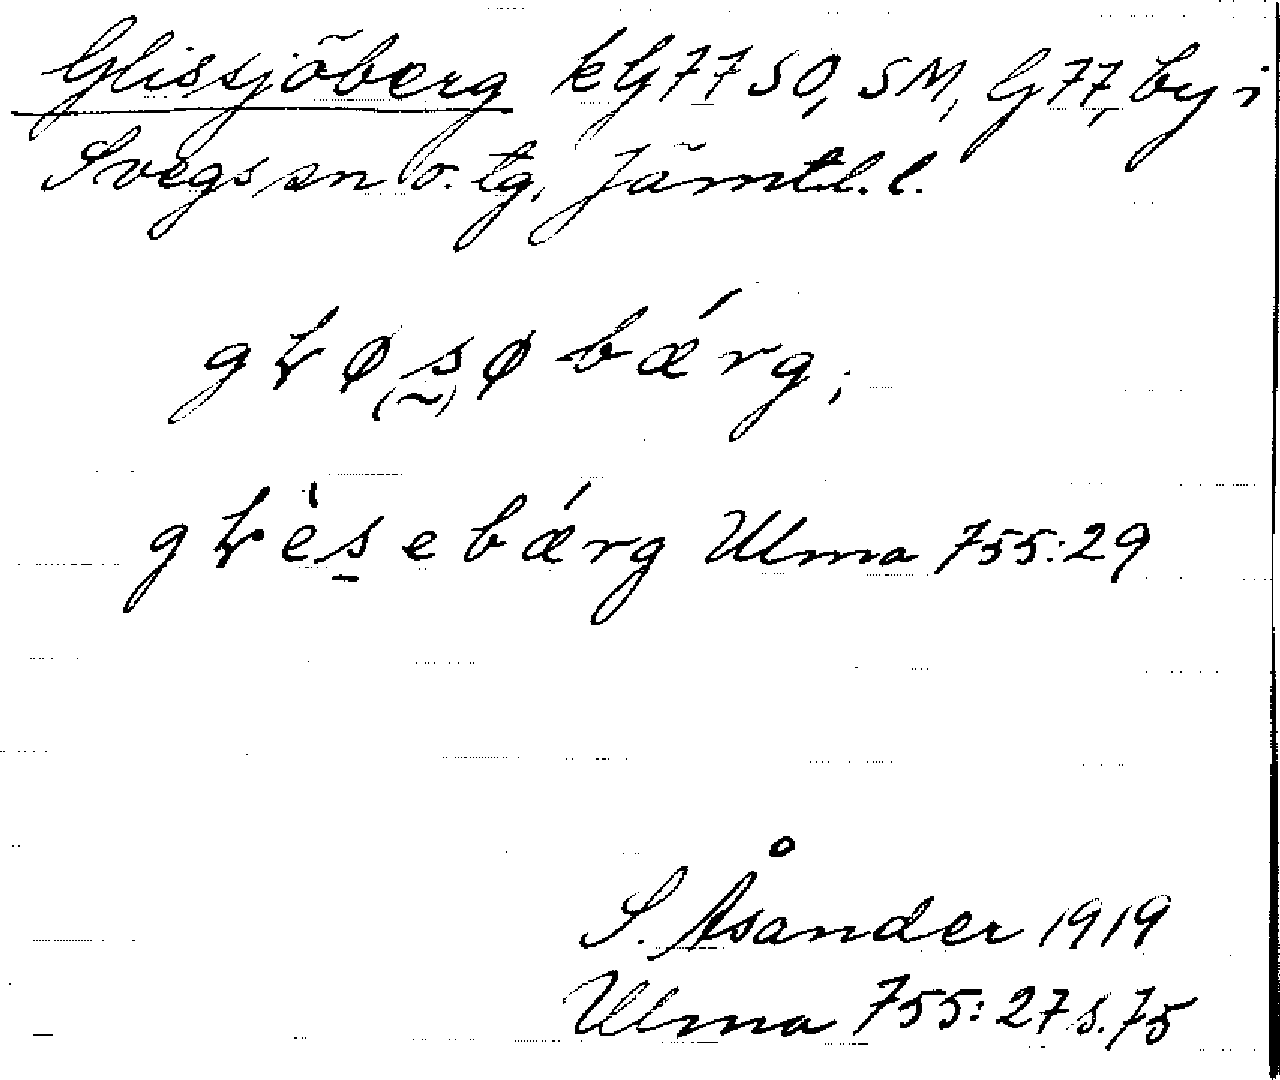 Glissjöberg kG77 SO, SM, G77, by i
Svegs sn o. tg, Jämtl. l.
gⱡøsøbǽrg;
(~)
gⱡèsebǽrg Ulma 755:29
S. Åsander 1919
Ulma 755:27 s. 75